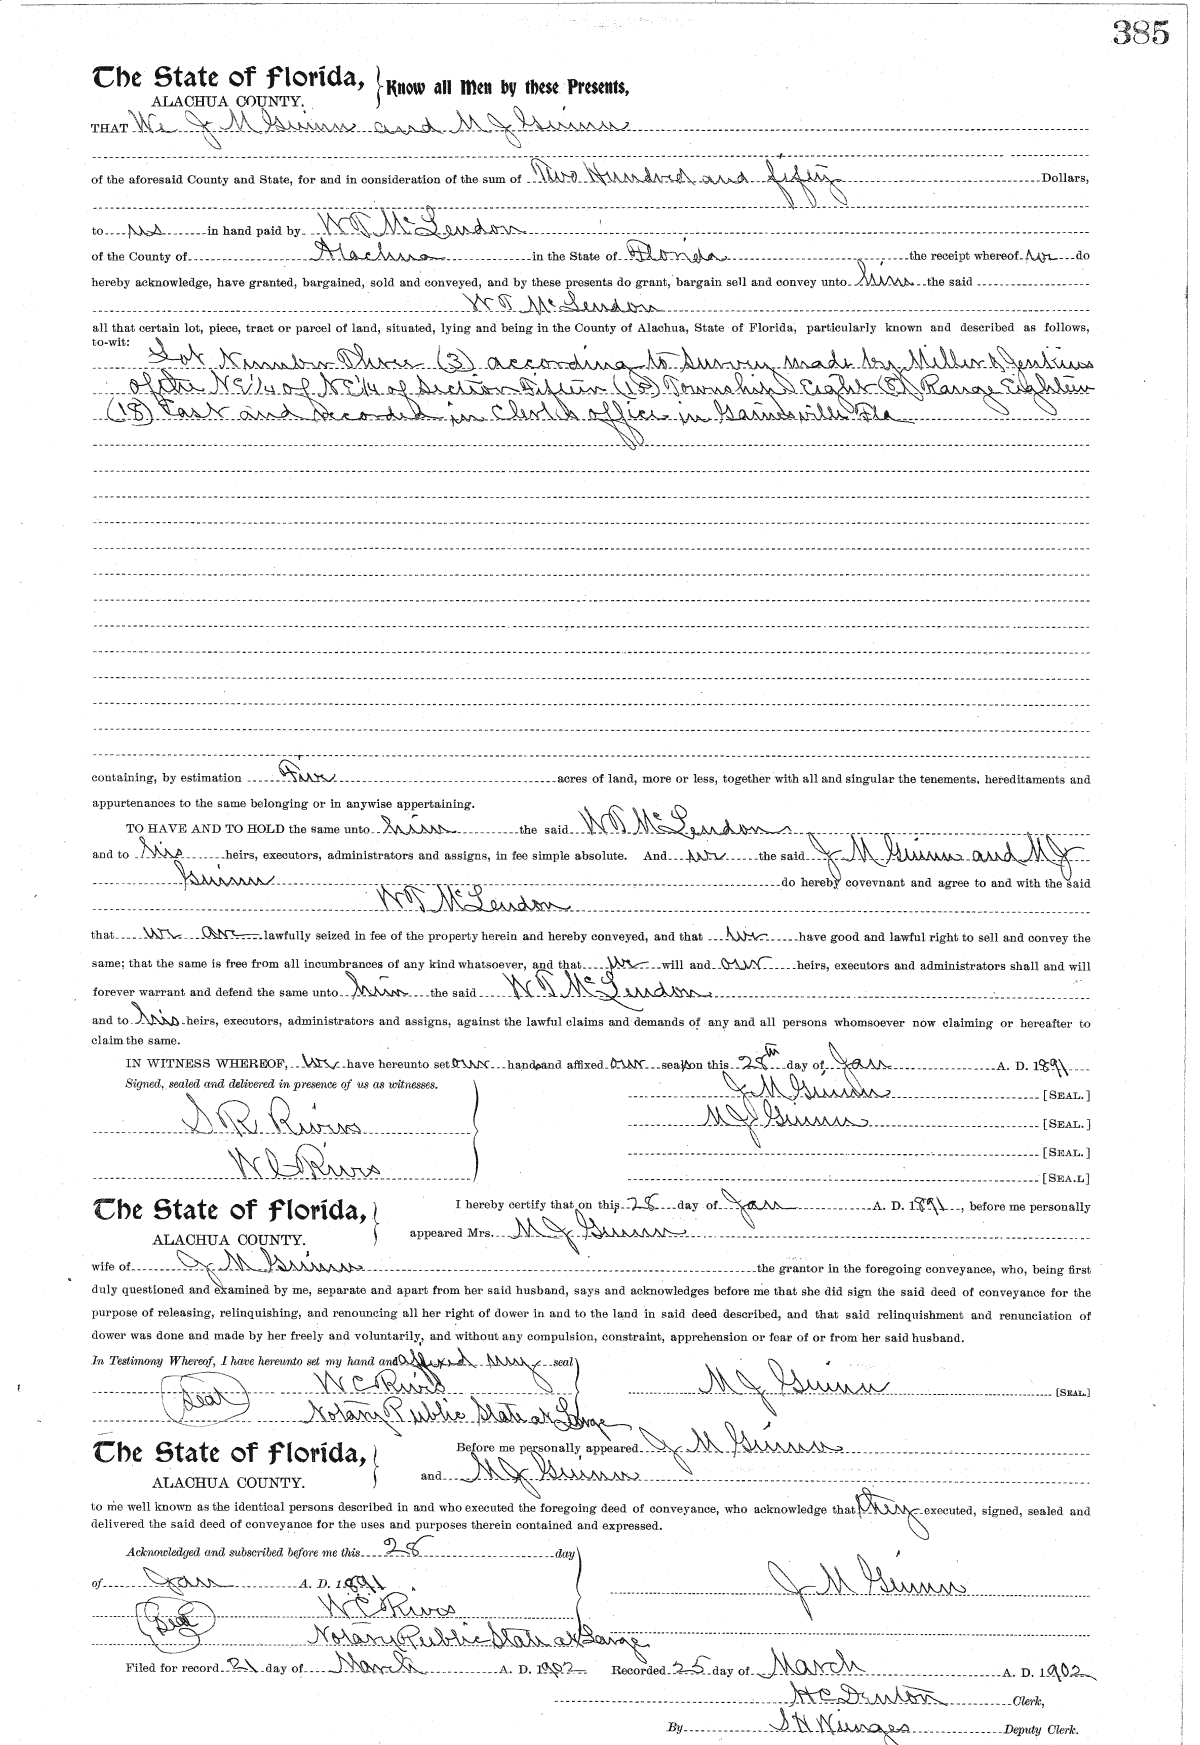 385
The State of Florida,
Know all Men by these Presents,
ALACHUA COUNTY.
THAT We J M Guinn and M J Guinn
of the aforesaid County and State, for and in consideration of the sum of Two Hundred and fifty Dollars,
to us in hand paid by W T McLendon
of the County of Alachua in the State of Florida the receipt whereof we do
hereby acknowledge, have granted, bargained, sold and conveyed, and by these presents do grant, bargain sell and convey unto him the said
W T McLendon
all that certain lot, piece, tract or parcel of land, situated, lying and being in the County of Alachua, State of Florida, particularly known and described as follows,
to-wit:
Lot Number Three (3) according to Survey made by Miller & Jenkins
of the NE 1/4 of NE 1/4 of Section Fifteen (15) Township Eight (8) Range Eighteen
(18) East and recorded in Clerk's office in Gainesville Fla
containing, by estimation Five acres of land, more or less, together with all and singular the tenements, hereditaments and
appurtenances to the same belonging or in anywise appertaining.
TO HAVE AND TO HOLD the same unto him the said W T McLendon
and to his heirs, executors, administrators and assigns, in fee simple absolute. And we the said J M Guinn and M J
Guinn do hereby covevnant and agree to and with the said
W T McLendon
that we are lawfully seized in fee of the property herein and hereby conveyed, and that we have good and lawful right to sell and convey the
same; that the same is free from all incumbrances of any kind whatsoever, and that we will and our heirs, executors and administrators shall and will
forever warrant and defend the same unto him the said W T McLendon
and to his heirs, executors, administrators and assigns, against the lawful claims and demands of any and all persons whomsoever now claiming or hereafter to
claim the same.
IN WITNESS WHEREOF, we have hereunto set our hands and affixed our seals on this 28th day of Jan A. D. 1891
Signed, sealed and delivered in presence of us as witnesses.
J M Guinn [SEAL.]
S R Rivers
M J Guinn [SEAL.]
[SEAL.]
W C Rivers
[SEA.L]
The State of Florida,
ALACHUA COUNTY.
I hereby certify that on this 28 day of Jan A. D. 1891, before me personally
appeared Mrs. M J Guinn
wife of J M Guinn the grantor in the foregoing conveyance, who, being first
duly questioned and examined by me, separate and apart from her said husband, says and acknowledges before me that she did sign the said deed of conveyance for the
purpose of releasing, relinquishing, and renouncing all her right of dower in and to the land in said deed described, and that said relinquishment and renunciation of
dower was done and made by her freely and voluntarily, and without any compulsion, constraint, apprehension or fear of or from her said husband.
In Testimony Whereof, I have hereunto set my hand and affixed my seal
Seal W C Rivers M J Guinn [SEAL]
Notary Public State at Large
The State of Florida,
ALACHUA COUNTY.
Before me personally appeared J M Guinn
and M J Guinn
to me well known as the identical persons described in and who executed the foregoing deed of conveyance, who acknowledge that they executed, signed, sealed and
delivered the said deed of conveyance for the uses and purposes therein contained and expressed.
Acknowledged and subscribed before me this 28 day
of Jan A. D. 1891 J M Guinn
Seal W C Rivers
Notary Public State at Large
Filed for record 21 day of March A. D. 1902 Recorded 25 day of March A. D. 1902
H C Denton Clerk,
By S H Wienges Deputy Clerk.